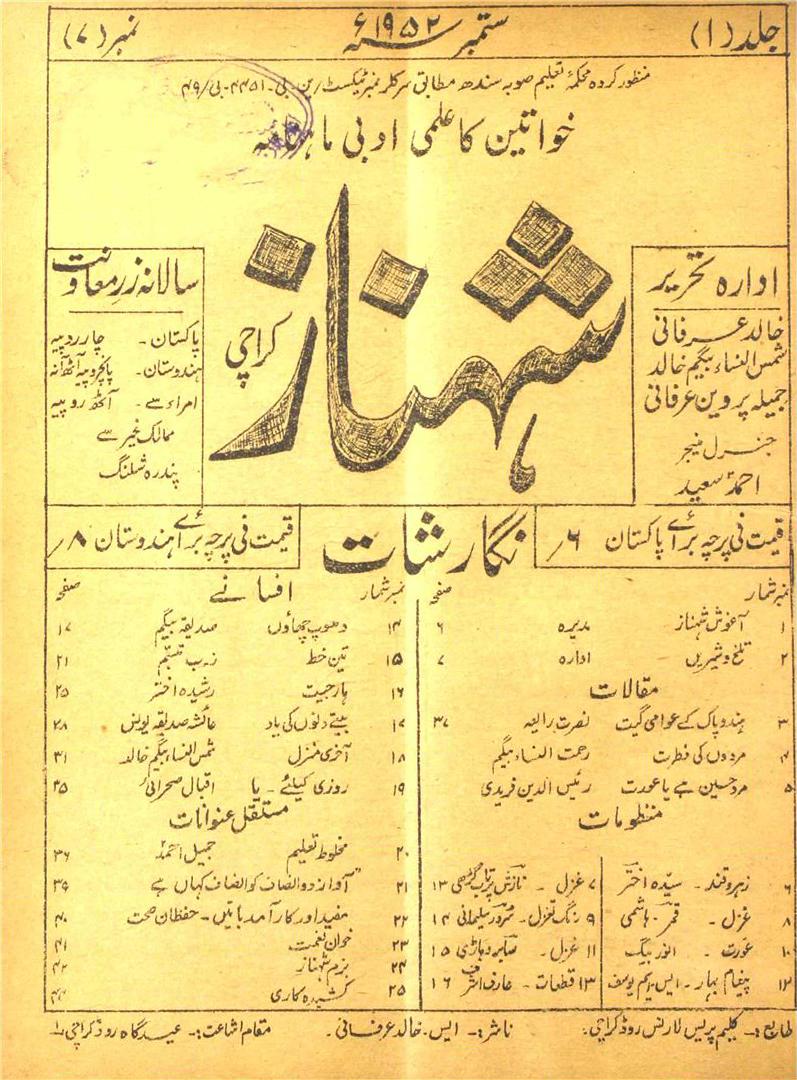 جلد (۱)
ستمبر ۱۹۵۲ء
نمبر (۷)
منظور کردہ محکمۂ تعلیم صوبہ سندھ مطابق سرکلر نمبر
خواتین کا علمی ادبی ماہنامہ
شہناز
کراچی
ادارہ تحریر
خالد عرفانی
شمس النساء بیگم خالد
جمیلہ پروین عرفانی
جنرل منیجر
احمد سعید
سالانہ زرِ معاونت
پاکستان - چار روپیہ
ہندوستان - پانچ روپیہ آٹھ آنہ
امراء سے - آٹھ روپیہ
ممالک غیر سے
پندرہ شلنگ
قیمت فی پرچہ برائے پاکستان ۶/
نگارشات
قیمت فی پرچہ برائے ہندوستان ۸/
نمبر شمار صفحہ
۱ آغوش شہناز مدیرہ ۶
۲ تلخ و شیریں ادارہ ۷
مقالات
۳ ہندو پاک کے عوامی گیت نصرت رابعہ ۳۷
۴ مردوں کی فطرت رحمت النساء بیگم
۵ مرد حسین ہے یا عورت رئیس الدین فریدی
منظومات
۶ زہر و قند - سیدہ اختر ۷ غزل - نازش پرتاب گڑھی ۱۳
۸ غزل - قمر ہاشمی ۹ رنگ تغزل - سلیمانی ۱۴
۱۰ عورت - انور بیگ ۱۱ غزل - ۱۵
۱۲ پیغام بہار - ایس ایم یوسف ۱۳ قطعات - عارف اشرف ۱۶
نمبر شمار افسانے صفحہ
۱۴ دھوپ چھاؤں صدیقہ بیگم ۱۷
۱۵ تین خط زیب تبسم ۲۱
۱۶ ہار جیت رشیدہ اختر ۲۵
۱۷ بیتے دنوں کی یاد عائشہ صدیقہ یونس ۲۸
۱۸ آخری منزل شمس النساء بیگم خالد ۳۱
۱۹ روزی کیلئے - یا اقبال صحرائی ۳۵
مستقل عنوانات
۲۰ مخلوط تعلیم جمیل احمد ۳۶
۲۱ آواز دو انصاف کو انصاف کہاں ہے ۳۹
۲۲ مفید اور کار آمد باتیں - حفظان صحت ۴۰
۲۳ خوان نعمت ۴۱
۲۴ بزم شہناز ۴۲
۲۵ کشیدہ کاری ۴۴
طابع :- کلیم پریس لارنس روڈ کراچی - ناشر :- ایس - خالد عرفانی - مقام اشاعت :- عیدگاہ روڈ کراچی ۱